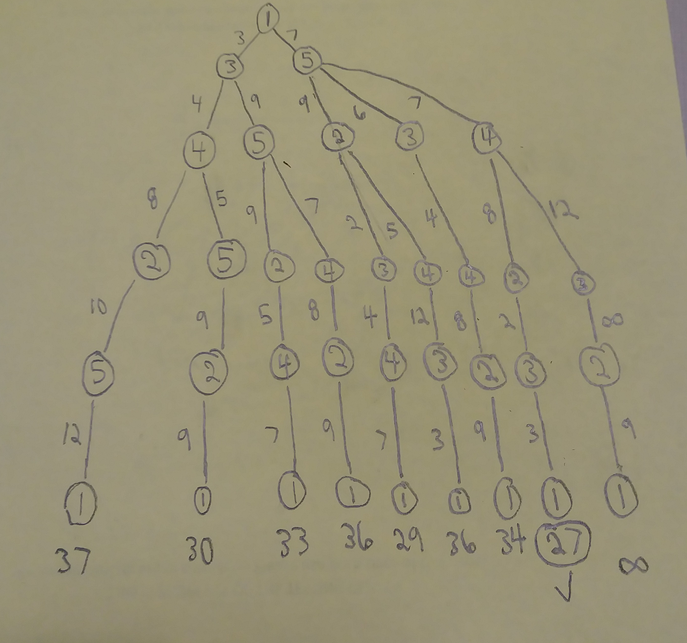 1
3 7
3 5
4 9 9 6 7
4 5 2 3 4
8 5 9 7 2 5 4 8 12
2 5 2 4 3 4 4 2 3
10 9 5 8 4 12 8 2 ∞
5 2 4 2 4 3 2 3 2
12 9 7 9 7 3 9 3 9
1 1 1 1 1 1 1 1 1
37 30 33 36 29 36 34 27 ∞